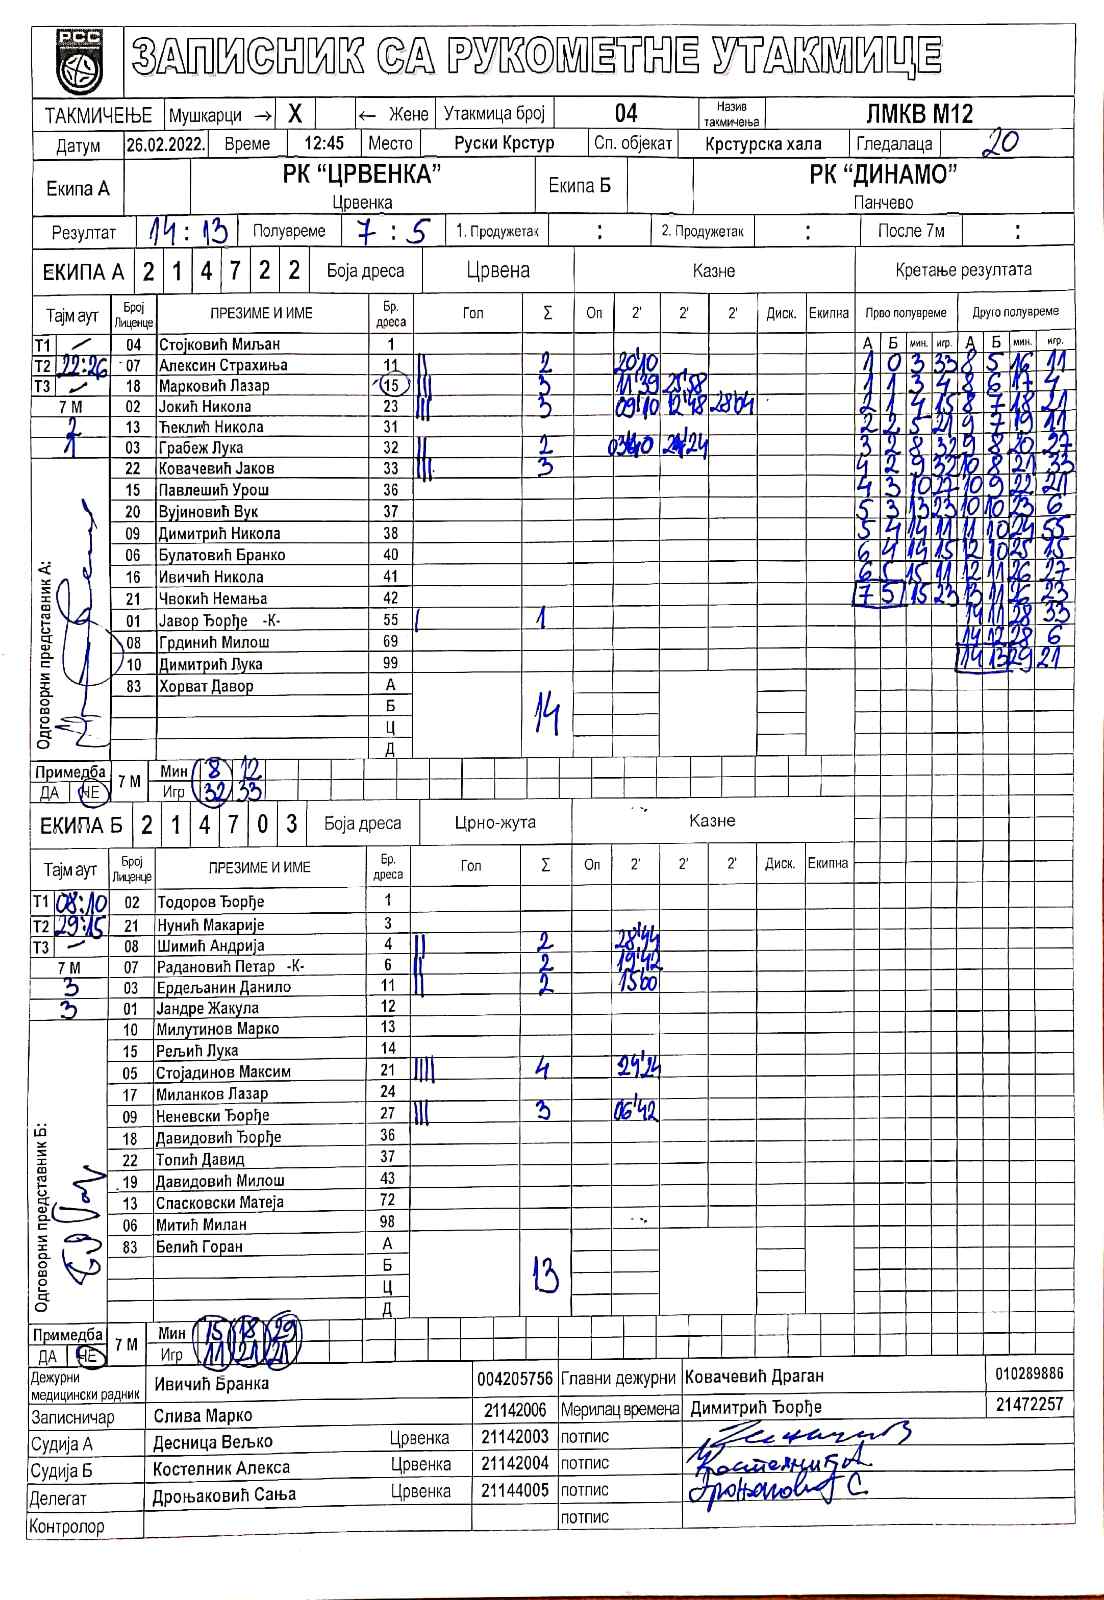 РСС
ЗАПИСНИК СА РУКОМЕТНЕ УТАКМИЦЕ
ТАКМИЧЕЊЕ Мушкарци → X ← Жене Утакмица број 04 Назив такмичења ЛМКВ М12
Датум 26.02.2022. Време 12:45 Место Руски Крстур Сп. објекат Крстурска хала Гледалаца 20
Екипа А РК “ЦРВЕНКА” Црвенка Екипа Б РК “ДИНАМО” Панчево
Резултат 14:13 Полувреме 7:5 1. Продужетак : 2. Продужетак : После 7м :
ЕКИПА А 2 1 4 7 2 2 Боја дреса Црвена Казне Кретање резултата
Тајм аут Број Лиценце ПРЕЗИМЕ И ИМЕ Бр. дреса Гол Σ Оп 2' 2' 2' Диск. Екипна Прво полувреме Друго полувреме
Т1 – 04 Стојковић Миљан 1 А Б мин. игр. А Б мин. игр.
Т2 22:26 07 Алексин Страхиња 11 || 2 20'10 1 0 3 33 8 5 16 11
Т3 – 18 Марковић Лазар 15 ||| 3 11'39 25'58 1 1 3 4 8 6 17 4
7 М 02 Јокић Никола 23 ||| 3 09'10 12'48 28'04 2 1 4 15 8 7 18 21
2 13 Ћеклић Никола 31 2 2 5 21 9 7 19 11
1 03 Грабеж Лука 32 || 2 03'40 24'24 3 2 8 32 9 8 20 27
22 Ковачевић Јаков 33 ||| 3 4 2 9 32 10 8 21 33
15 Павлешић Урош 36 4 3 10 27 10 9 22 21
20 Вујиновић Вук 37 5 3 13 23 10 10 23 6
09 Димитрић Никола 38 5 4 14 11 11 10 24 55
06 Булатовић Бранко 40 6 4 14 15 12 10 25 15
16 Ивичић Никола 41 6 5 15 11 12 11 26 27
21 Чвокић Немања 42 7 5 15 23 13 11 26 23
01 Јавор Ђорђе -К- 55 | 1 14 11 28 33
08 Грдинић Милош 69 14 12 28 6
10 Димитрић Лука 99 14 13 29 21
83 Хорват Давор А
Б 14
Ц
Д
Одговорни представник А:
Примедба 7 М Мин 8 12
ДА НЕ Игр 32 33
ЕКИПА Б 2 1 4 7 0 3 Боја дреса Црно-жута Казне
Тајм аут Број Лиценце ПРЕЗИМЕ И ИМЕ Бр. дреса Гол Σ Оп 2' 2' 2' Диск. Екипна
Т1 08:10 02 Тодоров Ђорђе 1
Т2 29:15 21 Нунић Макарије 3
Т3 – 08 Шимић Андрија 4 || 2 28'44
7 М 07 Радановић Петар -К- 6 || 2 19'42
3 03 Ердељанин Данило 11 || 2 15'00
3 01 Јандре Жакула 12
10 Милутинов Марко 13
15 Рељић Лука 14
05 Стојадинов Максим 21 |||| 4 24'24
17 Миланков Лазар 24
09 Неневски Ђорђе 27 ||| 3 06'42
18 Давидовић Ђорђе 36
22 Топић Давид 37
19 Давидовић Милош 43
13 Спасковски Матеја 72
06 Митић Милан 98
83 Белић Горан А
Б 13
Ц
Д
Одговорни представник Б:
Примедба 7 М Мин 15 18 29
ДА НЕ Игр 11 21 21
Дежурни медицински радник Ивичић Бранка 004205756 Главни дежурни Ковачевић Драган 010289886
Записничар Слива Марко 21142006 Мерилац времена Димитрић Ђорђе 21472257
Судија А Десница Вељко Црвенка 21142003 потпис
Судија Б Костелник Алекса Црвенка 21142004 потпис Костелник А.
Делегат Дроњаковић Сања Црвенка 21144005 потпис Дроњаковић С.
Контролор потпис